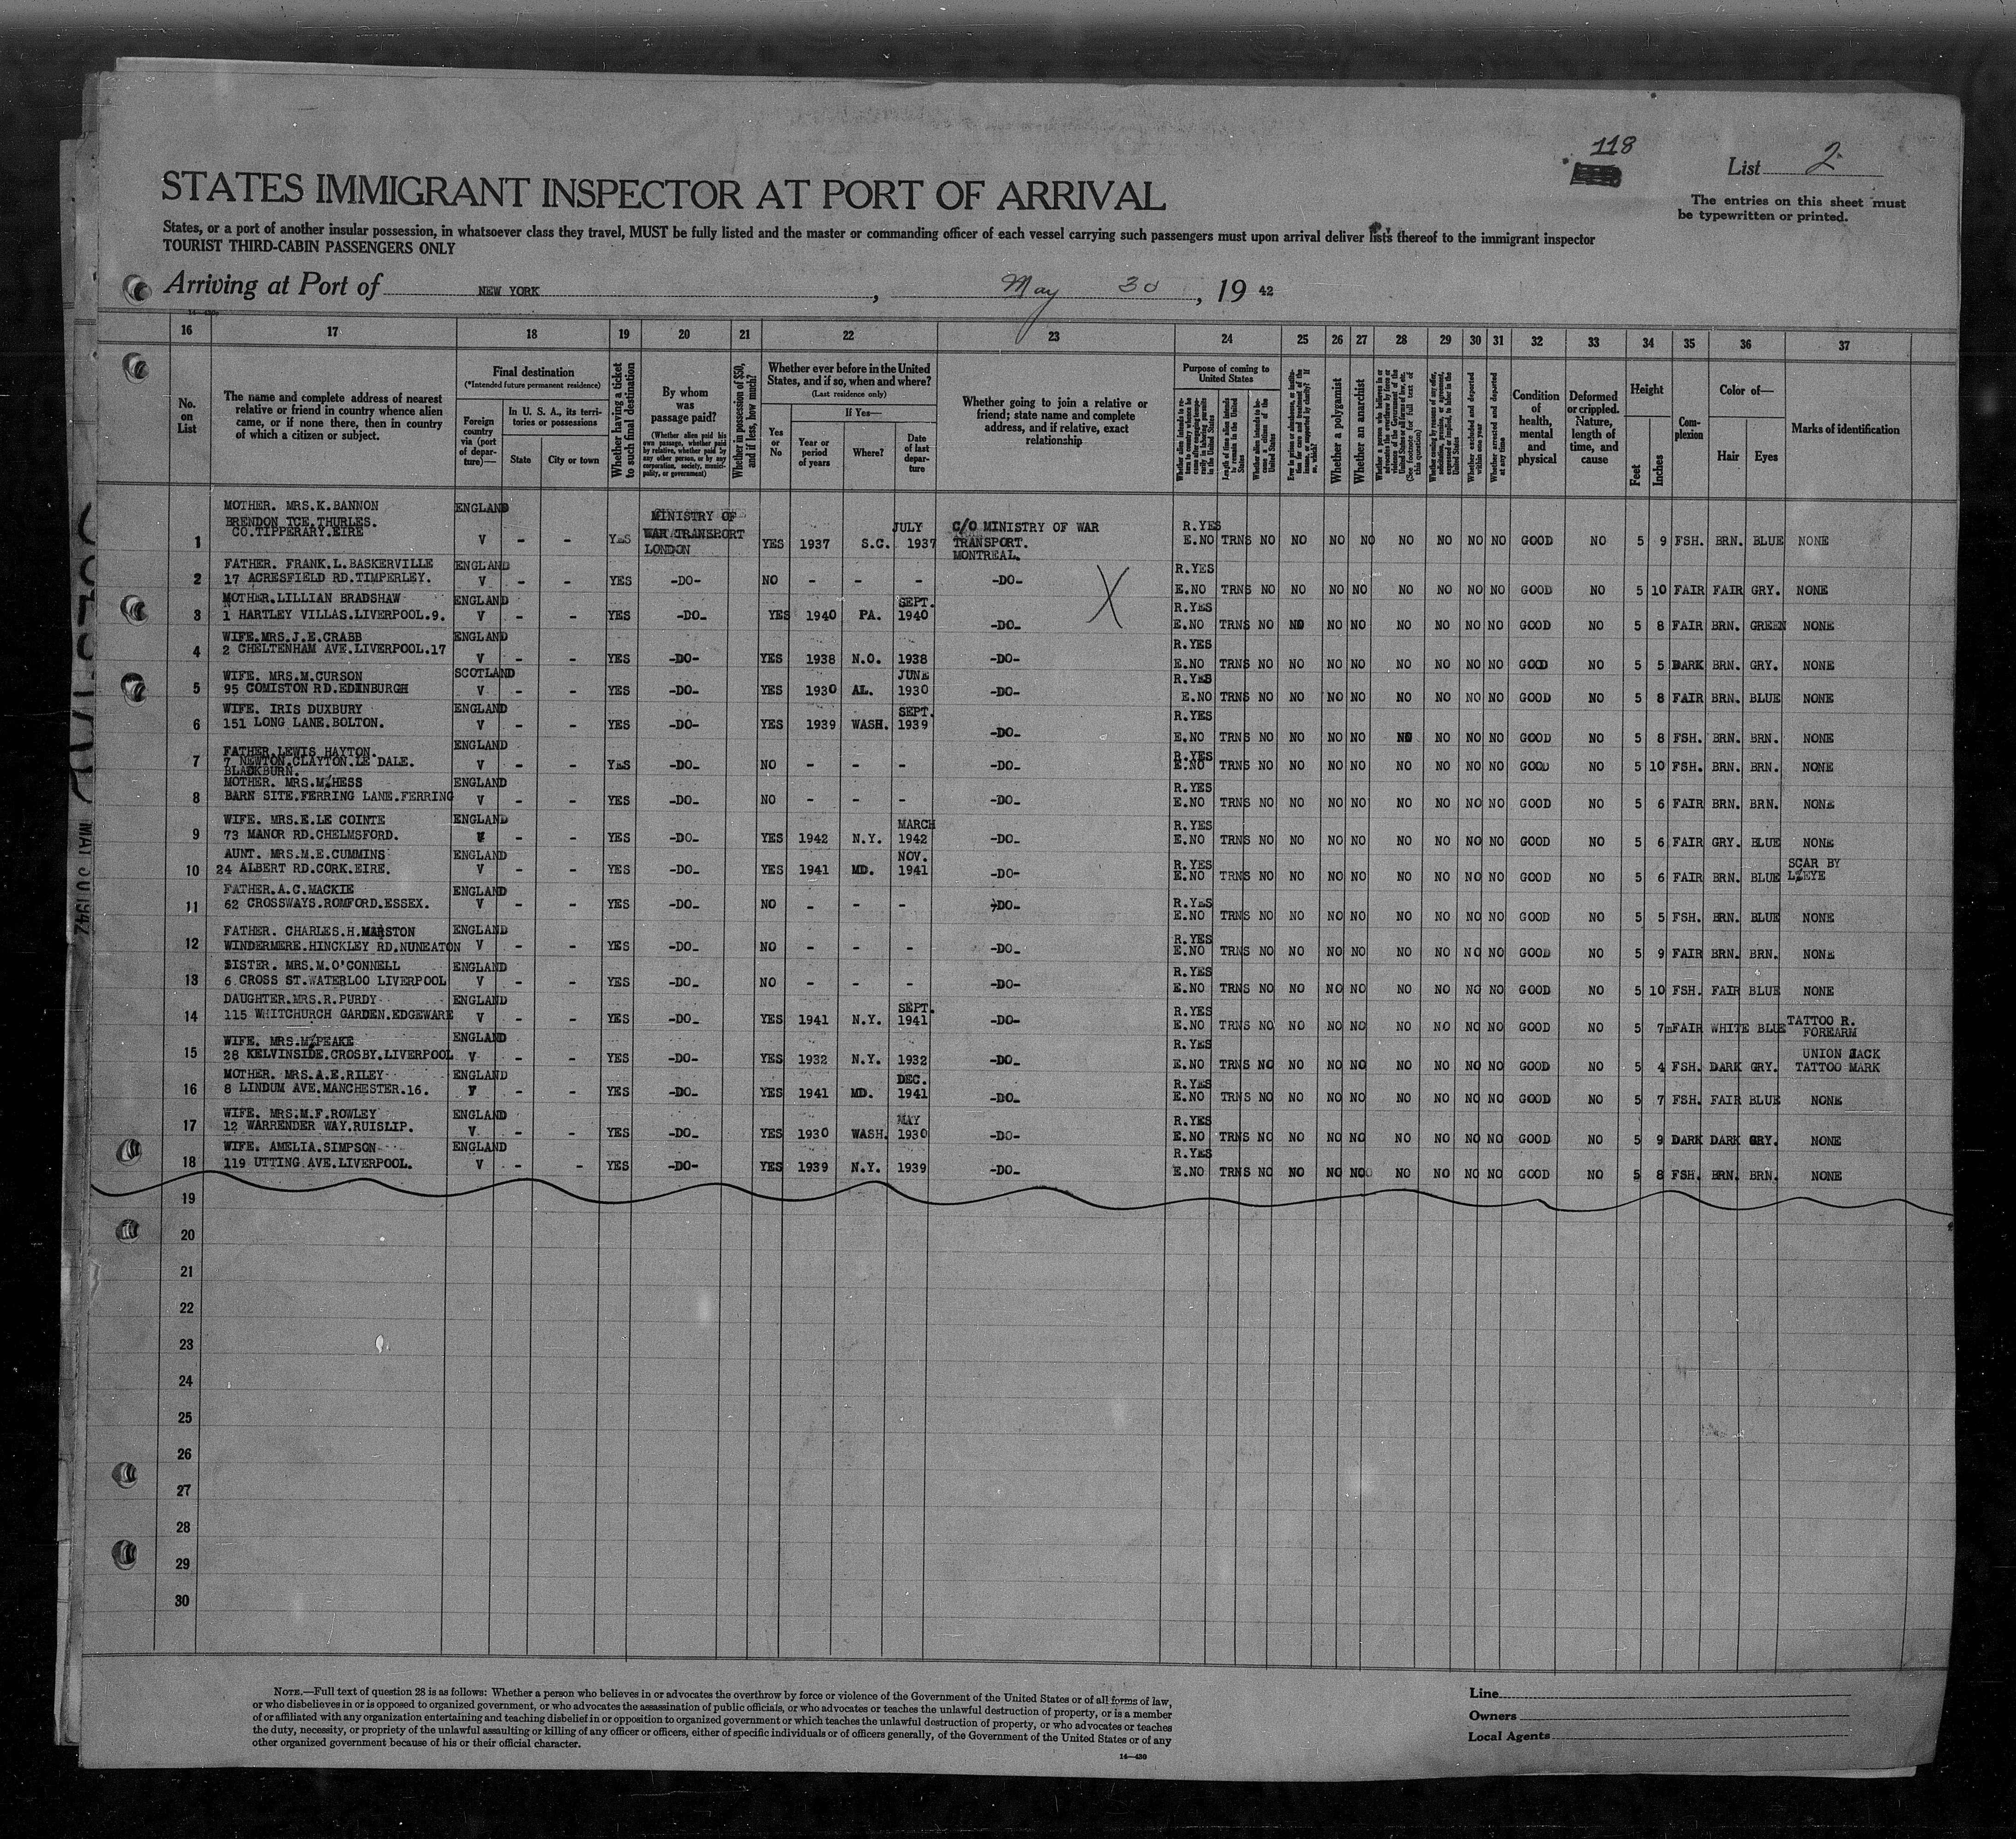 118
List 2
The entries on this sheet must
be typewritten or printed.
STATES IMMIGRANT INSPECTOR AT PORT OF ARRIVAL
States, or a port of another insular possession, in whatsoever class they travel, MUST be fully listed and the master or commanding officer of each vessel carrying such passengers must upon arrival deliver lists thereof to the immigrant inspector
TOURIST THIRD-CABIN PASSENGERS ONLY
Arriving at Port of NEW YORK, May 30, 19 42
16 17 18 19 20 21 22 23 24 25 26 27 28 29 30 31 32 33 34 35 36 37
No. on List
The name and complete address of nearest
relative or friend in country whence alien
came, or if none there, then in country
of which a citizen or subject.
Final destination
(*Intended future permanent residence)
Foreign country via (port of departure)—
In U. S. A., its territories or possessions
State
City or town
Whether having a ticket to such final destination
By whom was passage paid?
(Whether alien paid his own passage, whether paid by relative, whether paid by any other person, or by any corporation, society, municipality, or government)
Whether in possession of $50, and if less, how much?
Whether ever before in the United
States, and if so, when and where?
(Last residence only)
Yes or No
If Yes—
Year or period of years
Where?
Date of last departure
Whether going to join a relative or
friend; state name and complete
address, and if relative, exact
relationship
Purpose of coming to United States
Length of time alien intends to remain in the United States
Whether alien intends to become a citizen of the United States
Whether a polygamist
Whether an anarchist
Whether excluded and deported within one year
Whether arrested and deported at any time
Condition of health, mental and physical
Deformed or crippled. Nature, length of time, and cause
Height
Feet
Inches
Complexion
Color of—
Hair
Eyes
Marks of identification
MOTHER. MRS.K.BANNON ENGLAND
BRENDON TCE.THURLES. MINISTRY OF JULY C/O MINISTRY OF WAR R.YES
CO.TIPPERARY.EIRE WAR TRANSPORT
1 V - - YES LONDON YES 1937 S.C. 1937 TRANSPORT. E.NO TRNS NO NO NO NO NO NO NO NO GOOD NO 5 9 FSH. BRN. BLUE NONE
MONTREAL.
FATHER. FRANK.L.BASKERVILLE ENGLAND R.YES
2 17 ACRESFIELD RD.TIMPERLEY. V - - YES -DO- NO - - - -DO- E.NO TRNS NO NO NO NO NO NO NO NO GOOD NO 5 10 FAIR FAIR GRY. NONE
MOTHER.LILLIAN BRADSHAW ENGLAND SEPT. R.YES
3 1 HARTLEY VILLAS.LIVERPOOL.9. V - - YES -DO- YES 1940 PA. 1940 -DO- E.NO TRNS NO NO NO NO NO NO NO NO GOOD NO 5 8 FAIR BRN. GREEN NONE
WIFE.MRS.J.E.CRABB ENGLAND R.YES
4 2 CHELTENHAM AVE.LIVERPOOL.17 V - - YES -DO- YES 1938 N.O. 1938 -DO- E.NO TRNS NO NO NO NO NO NO NO NO GOOD NO 5 5 DARK BRN. GRY. NONE
WIFE. MRS.M.CURSON SCOTLAND JUNE R.YES
5 95 COMISTON RD.EDINBURGH V - - YES -DO- YES 1930 AL. 1930 -DO- E.NO TRNS NO NO NO NO NO NO NO NO GOOD NO 5 8 FAIR BRN. BLUE NONE
WIFE. IRIS DUXBURY ENGLAND SEPT. R.YES
6 151 LONG LANE.BOLTON. V - - YES -DO- YES 1939 WASH. 1939 -DO- E.NO TRNS NO NO NO NO NO NO NO NO GOOD NO 5 8 FSH. BRN. BRN. NONE
FATHER.LEWIS HAYTON. ENGLAND R.YES
7 7 NEWTON.CLAYTON.LE DALE. V - - YES -DO- NO - - - -DO- E.NO TRNS NO NO NO NO NO NO NO NO GOOD NO 5 10 FSH. BRN. BRN. NONE
BLACKBURN.
MOTHER. MRS.M.HESS ENGLAND R.YES
8 BARN SITE.FERRING LANE.FERRING V - - YES -DO- NO - - - -DO- E.NO TRNS NO NO NO NO NO NO NO NO GOOD NO 5 6 FAIR BRN. BRN. NONE
WIFE. MRS.E.LE COINTE ENGLAND MARCH R.YES
9 73 MANOR RD.CHELMSFORD. V - - YES -DO- YES 1942 N.Y. 1942 -DO- E.NO TRNS NO NO NO NO NO NO NO NO GOOD NO 5 6 FAIR GRY. BLUE NONE
AUNT. MRS.M.E.CUMMINS ENGLAND NOV. R.YES SCAR BY
10 24 ALBERT RD.CORK.EIRE. V - - YES -DO- YES 1941 MD. 1941 -DO- E.NO TRNS NO NO NO NO NO NO NO NO GOOD NO 5 6 FAIR BRN. BLUE L.EYE
FATHER.A.C.MACKIE ENGLAND R.YES
11 62 CROSSWAYS.ROMFORD.ESSEX. V - - YES -DO- NO - - - -DO- E.NO TRNS NO NO NO NO NO NO NO NO GOOD NO 5 5 FSH. BRN. BLUE NONE
FATHER. CHARLES.H.MARSTON ENGLAND R.YES
12 WINDERMERE.HINCKLEY RD.NUNEATON V - - YES -DO- NO - - - -DO- E.NO TRNS NO NO NO NO NO NO NO NO GOOD NO 5 9 FAIR BRN. BRN. NONE
SISTER. MRS.M.O'CONNELL ENGLAND R.YES
13 6 CROSS ST.WATERLOO LIVERPOOL V - - YES -DO- NO - - - -DO- E.NO TRNS NO NO NO NO NO NO NO NO GOOD NO 5 10 FSH. FAIR BLUE NONE
DAUGHTER.MRS.R.PURDY ENGLAND SEPT. R.YES TATTOO R.
14 115 WHITCHURCH GARDEN.EDGEWARE V - - YES -DO- YES 1941 N.Y. 1941 -DO- E.NO TRNS NO NO NO NO NO NO NO NO GOOD NO 5 7 FAIR WHITE BLUE FOREARM
WIFE. MRS.M.PEAKE ENGLAND R.YES UNION JACK
15 28 KELVINSIDE.CROSBY.LIVERPOOL V - - YES -DO- YES 1932 N.Y. 1932 -DO- E.NO TRNS NO NO NO NO NO NO NO NO GOOD NO 5 4 FSH. DARK GRY. TATTOO MARK
MOTHER. MRS.A.E.RILEY ENGLAND DEC. R.YES
16 8 LINDUM AVE.MANCHESTER.16. V - - YES -DO- YES 1941 MD. 1941 -DO- E.NO TRNS NO NO NO NO NO NO NO NO GOOD NO 5 7 FSH. FAIR BLUE NONE
WIFE. MRS.M.F.ROWLEY ENGLAND MAY R.YES
17 12 WARRENDER WAY.RUISLIP. V - - YES -DO- YES 1930 WASH. 1930 -DO- E.NO TRNS NO NO NO NO NO NO NO NO GOOD NO 5 9 DARK DARK GRY. NONE
WIFE. AMELIA.SIMPSON ENGLAND R.YES
18 119 UTTING AVE.LIVERPOOL. V - - YES -DO- YES 1939 N.Y. 1939 -DO- E.NO TRNS NO NO NO NO NO NO NO NO GOOD NO 5 8 FSH. BRN. BRN. NONE
19
20
21
22
23
24
25
26
27
28
29
30
NOTE.—Full text of question 28 is as follows: Whether a person who believes in or advocates the overthrow by force or violence of the Government of the United States or of all forms of law,
or who disbelieves in or is opposed to organized government, or who advocates the assassination of public officials, or who advocates or teaches the unlawful destruction of property, or is a member
of or affiliated with any organization entertaining and teaching disbelief in or opposition to organized government or which teaches the unlawful destruction of property, or who advocates or teaches
the duty, necessity, or propriety of the unlawful assaulting or killing of any officer or officers, either of specific individuals or of officers generally, of the Government of the United States or of any
other organized government because of his or their official character.
14—430
Line
Owners
Local Agents